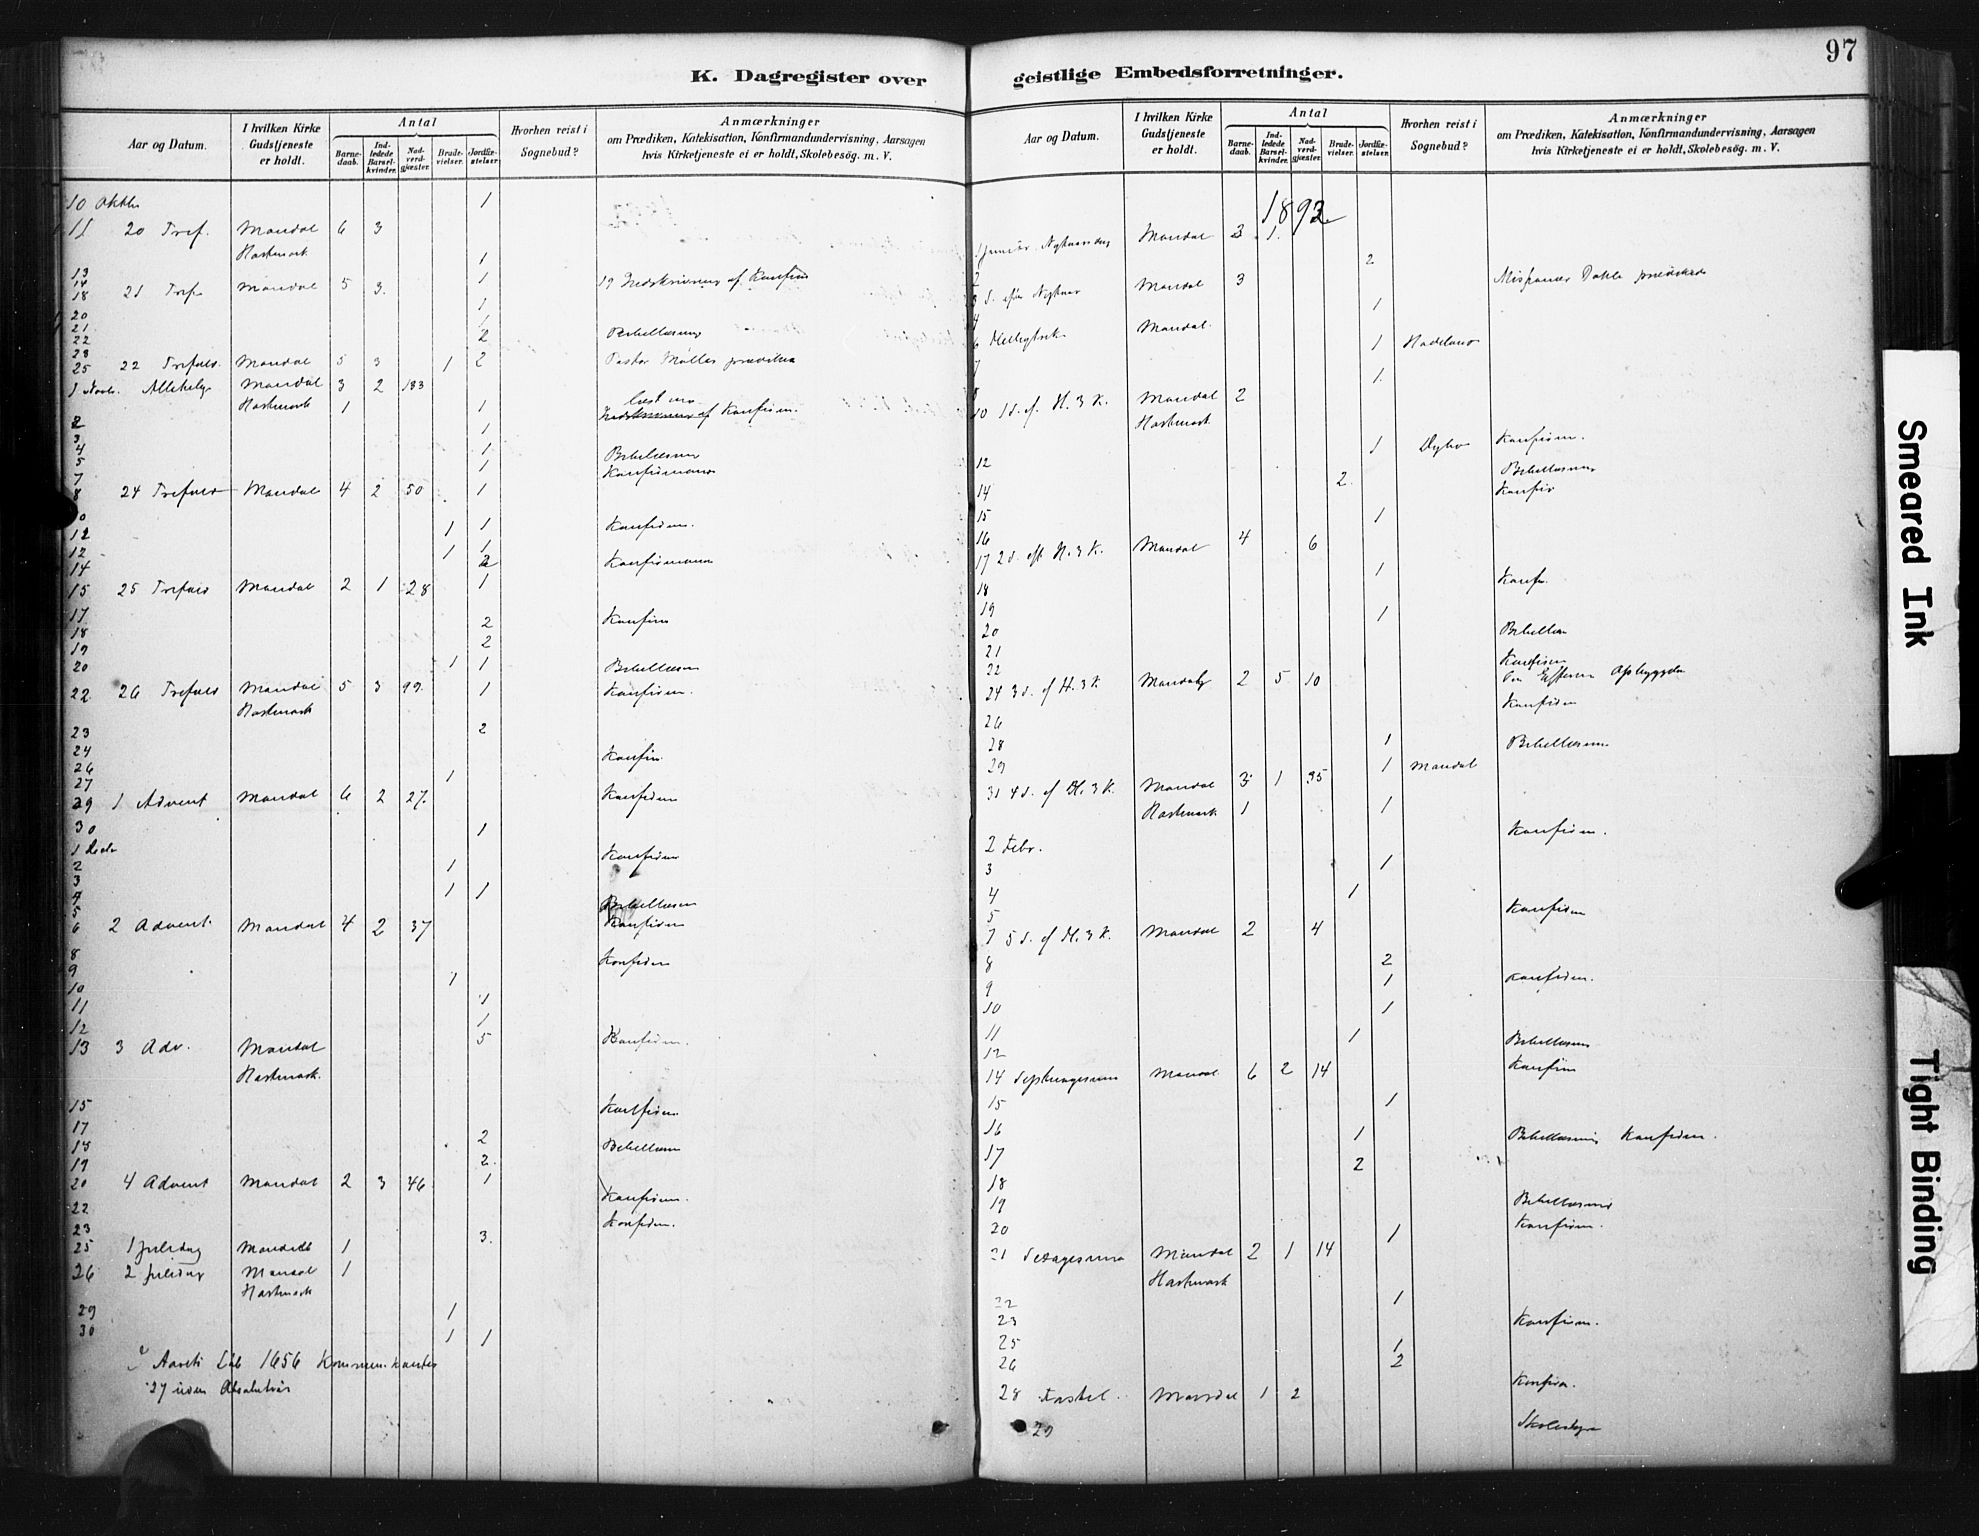 97
K. Dagregister over geistlige Embedsforretninger.
Aar og Datum.
I hvilken Kirke Gudstjeneste er holdt.
Antal
Barnedaab.
Indledede Barselkvinder.
Nadverdgjæster.
Brudevielser.
Jordfæstelser.
Hvorhen reist i Sognebud?
Anmærkninger
om Prædiken, Katekisation, Konfirmandundervisning, Aarsagen
hvis Kirketjeneste ei er holdt, Skolebesøg. m. V.
10 Oktbr 1
11 20 Tref. Mandal 6 3
Hartmark
13 1
14 1
18 21 Tref Mandal 5 3.
20 1
21 1
22 2 Bibellæsning
23
25 22 Trefold. Mandal 5 3 1 2 Pastor Møller
1 Novb. Allehelg Mandal 3 2 183
Hartmark 1 1 Konfirm.
2
3 1
4 1 Bibellæsn
5 1 Konfirmand
7
8 24 Trefold Mandal 4 2 50 1
10 1 1 Konfirm.
12 1 1
12 2
14 Konfirmand
15 25 Trefold Mandal 2 1 28 1
17 2 Konfirm
18 2
19
20 1 1 Bibellæsn
22 26 Trefold Mandal 5 3 99 1 Konfirm.
Hartmark
23 2
24 Konfirm
26
27 1
29 1 Advent Mandal 6 2 27. Konfirm
30 1
1 Decbr Konfirm
2 1
3
4 1 1
5 Bibellæsn
6 2 Advent Mandal 4 2 37 Konfirm
8 Konfirm
9 1
10
11 1
12 1
13 3 Adv. Mandal 5 Konfirm.
Hartmark.
15 Konfirm.
17 2
18 Bibellæsn
19 2.
20 4 Advent Mandal 2 3 46 1 Konfirm.
22 Konfirm.
23 3.
25 1 Juledag Mandal 1
26 2 Juledag Mandal 1
Hartmark
29 1
30 1 1
Aarets Løb 1656 Kommunikanter
27 uden Absolution
Aar og Datum.
I hvilken Kirke Gudstjeneste er holdt.
Antal
Barnedaab.
Indledede Barselkvinder.
Nadverdgjæster.
Brudevielser.
Jordfæstelser.
Hvorhen reist i Sognebud?
Anmærkninger
om Prædiken, Katekisation, Konfirmandundervisning, Aarsagen
hvis Kirketjeneste ei er holdt, Skolebesøg. m. V.
1892
1 Januar Nytaarsdag Mandal 3 1.
2 2
3 S. efter Nytaar Mandal 3 Dahle
4 1
6 Helligtrek Mandal.
7 1
8 1.
10 1 S. ef. H. 3 K. Mandal 2
Hartmark
12 1 Konfirm.
14 2. Bibellæsning
15 1 Konfir
16
17 2 S. eft H. 3 K. Mandal 4 6
18 1 Konf.
19
20 1 Bibellæs
21
22 Konfirm
24 3 S. ef H. 3 K Mandal 2 5 10
26 Konfirm
28 1 Bibellæsn
29 1 Mandal
31 4 S. ef H. 3 K. Mandal 3 1 35
Hartmark 1 1
2 Febr. Konfirm.
3 1
4 1
5 Konfirm
7 5 S. ef H. 3 K. Mandal 2 4
8 2
9 1 Konfirm.
10 1
11 1
12 Bibellæsn
14 Septuagesima Mandal 6 2 14 Konfirm
15 1
16 1 Bibellæsning Konfirm.
17 2
18
19 Bibellæsning
20 1 Konfirm.
21 Sexagesima Mandal 2 1 14
Hartmark
22 1
23 Konfirm.
25 1
26 2
28 Fastel. Mandal 1 2 Konfirm.
29
Smeared Ink
Tight Binding